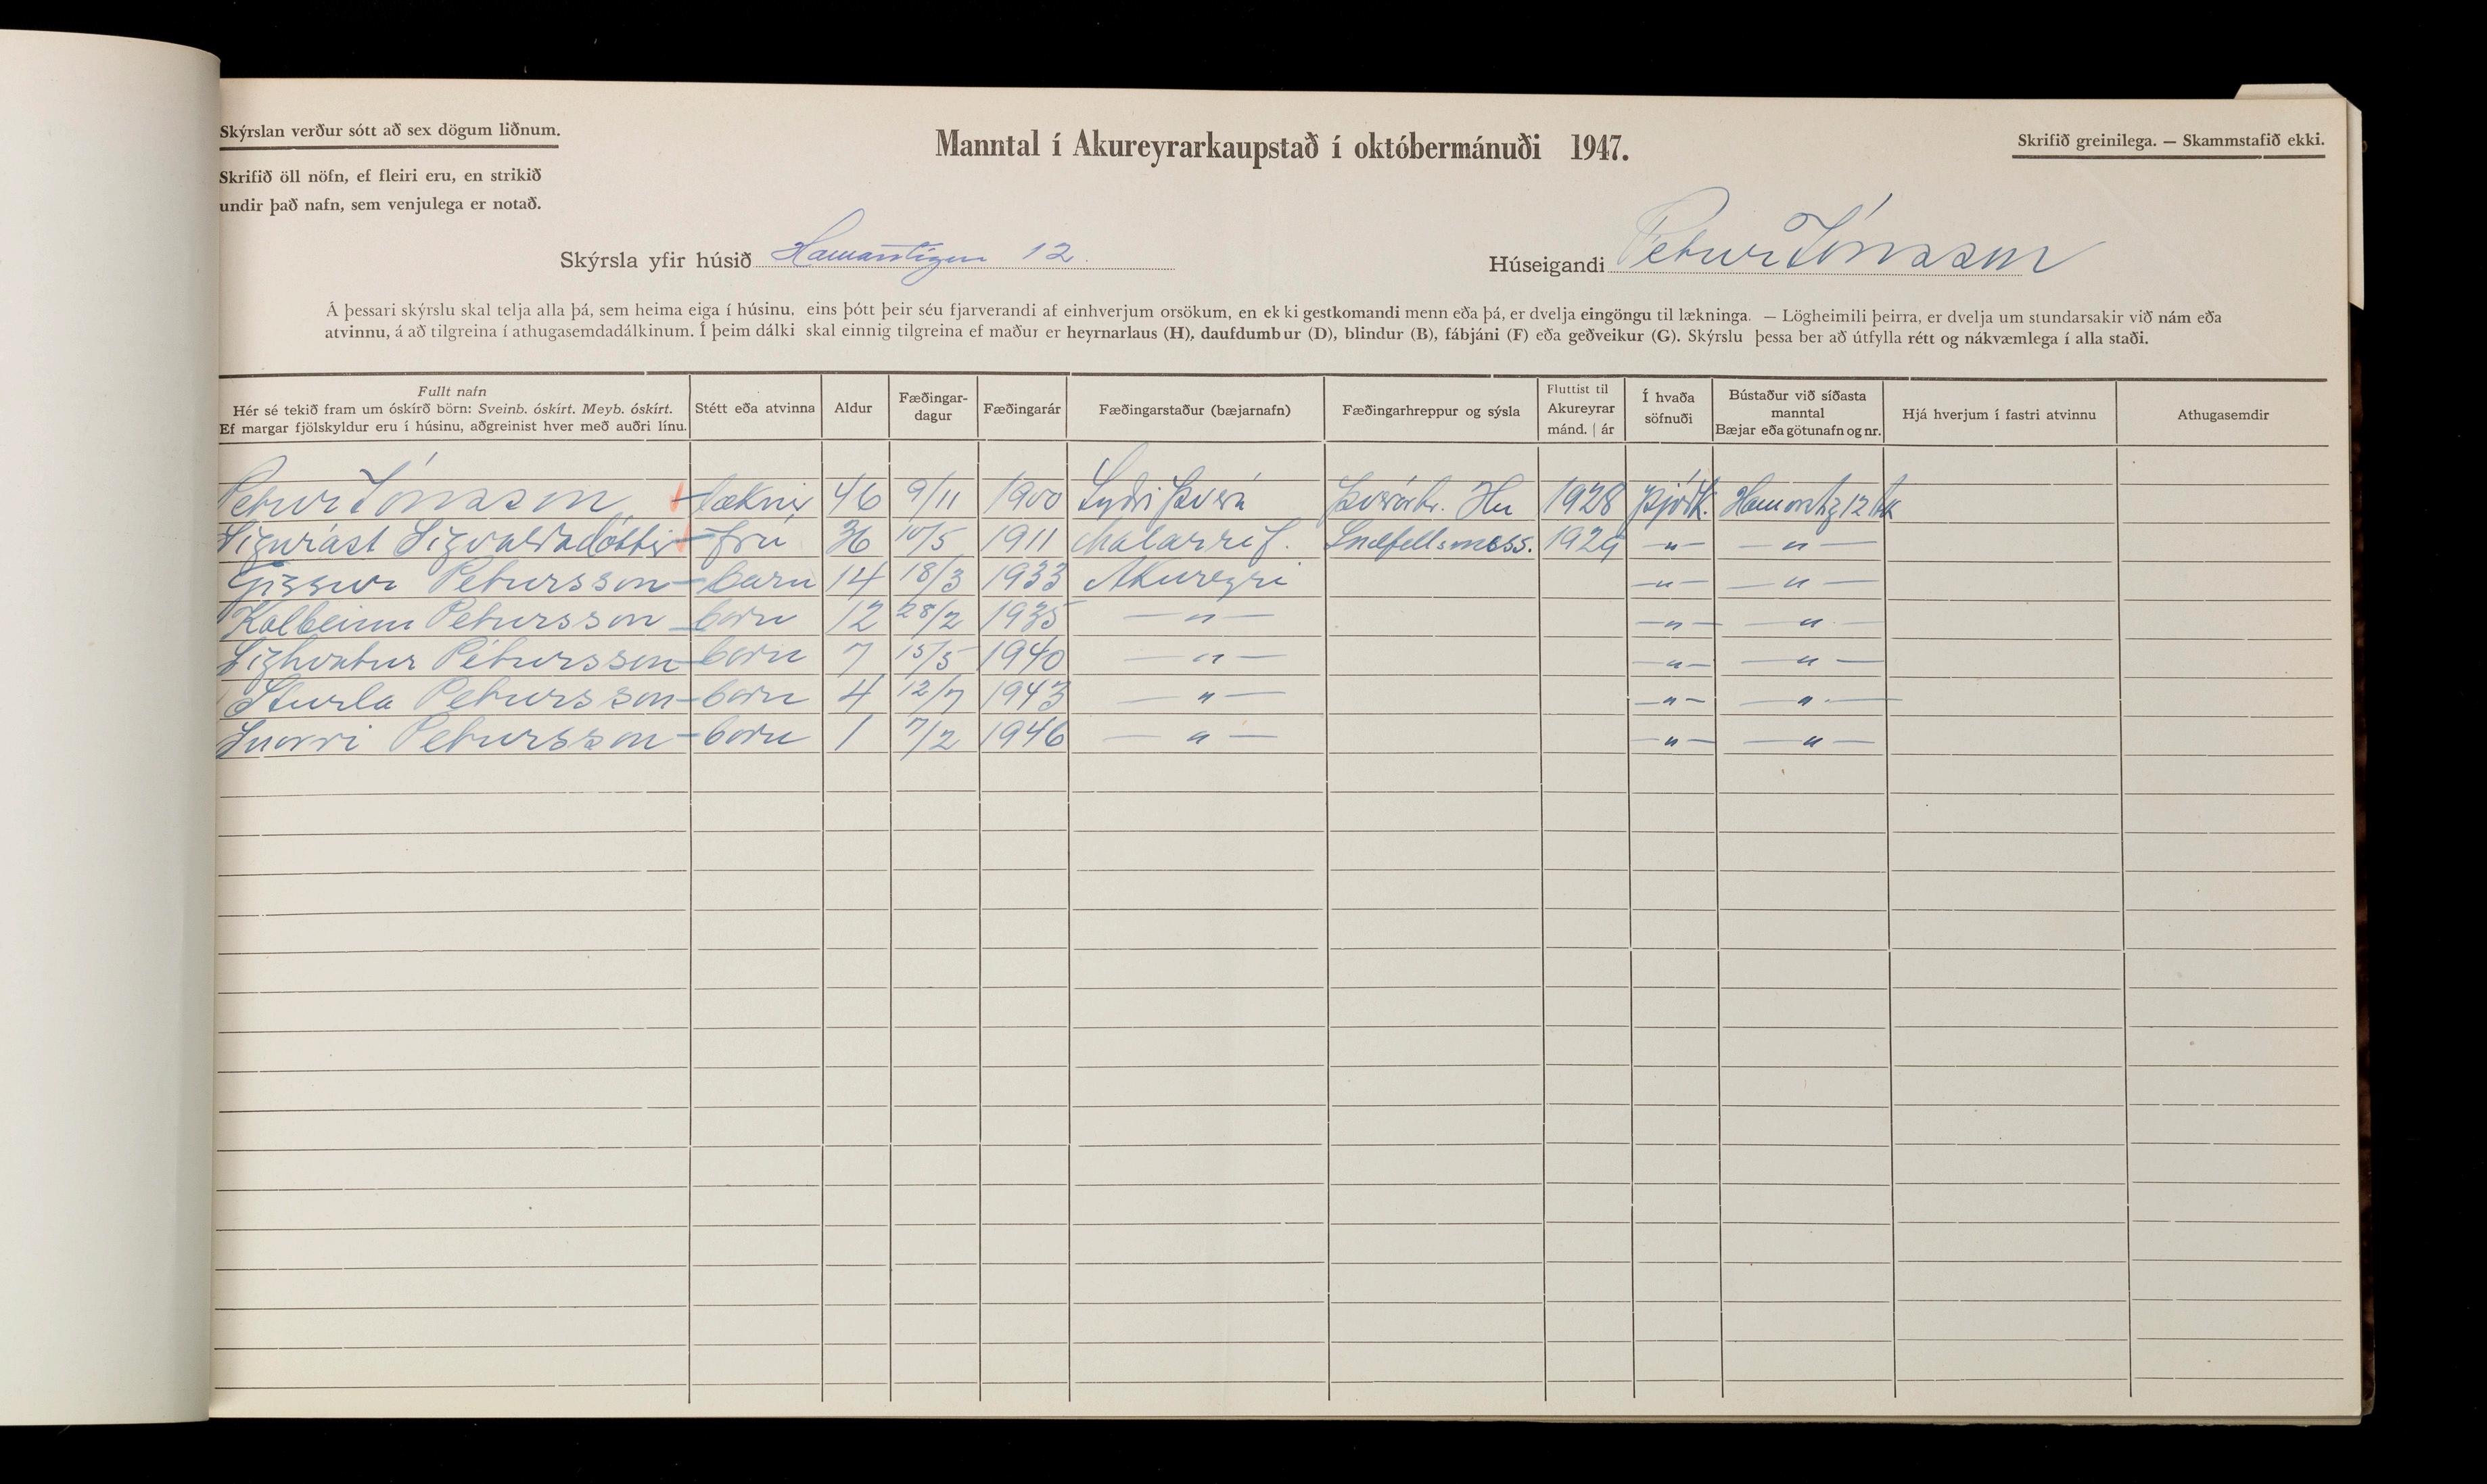 Skýrslan verður sótt að sex dögum liðnum.
Skrifið öll nöfn, ef fleiri eru, en strikið
undir það nafn, sem venjulega er notað.
Manntal í Akureyrarkaupstað í októbermánuði 1947.
Skrifið greinilega. — Skammstafið ekki.
Skýrsla yfir húsið Hamarstígur 12.
Húseigandi Petur Jónsson
Á þessari skýrslu skal telja alla þá, sem heima eiga í húsinu, eins þótt þeir séu fjarverandi af einhverjum orsökum, en ekki gestkomandi menn eða þá, er dvelja eingöngu til lækninga. — Lögheimili þeirra, er dvelja um stundarsakir við nám eða
atvinnu, á að tilgreina í athugasemdadálkinum. Í þeim dálki skal einnig tilgreina ef maður er heyrnarlaus (H), daufdumbur (D), blindur (B), fábjáni (F) eða geðveikur (G). Skýrslu þessa ber að útfylla rétt og nákvæmlega í alla staði.
Fullt nafn
Hér sé tekið fram um óskírð börn: Sveinb. óskírt. Meyb. óskírt.
Ef margar fjölskyldur eru í húsinu, aðgreinist hver með auðri línu.
Stétt eða atvinna
Aldur
Fæðingar-
dagur
Fæðingarár
Fæðingarstaður (bæjarnafn)
Fæðingarhreppur og sýsla
Fluttist til
Akureyrar
mánd. | ár
Í hvaða
söfnuði
Bústaður við síðasta
manntal
Bæjar eða götunafn og nr.
Hjá hverjum í fastri atvinnu
Athugasemdir
Petur Jónsson læknir 46 9/11 1900 Syðri Þverá Þverárhr. Hu 1928 Þjóðk. Hamarstíg 12 Ak
Sigurást Sigvaldadóttir frú 36 10/5 1911 Malarrif. Snæfellsness. 1929 — " — — " —
Gissur Petursson barn 14 18/3 1933 Akureyri — " — — " —
Kolbeinn Petursson barn 12 28/2 1935 — " — — " — — " —
Sighvatur Pétursson barn 7 15/5 1940 — " — — " — — " —
Sturla Petursson barn 4 12/7 1943 — " — — " — — " —
Snorri Petursson barn 1 7/2 1946 — " — — " — — " —